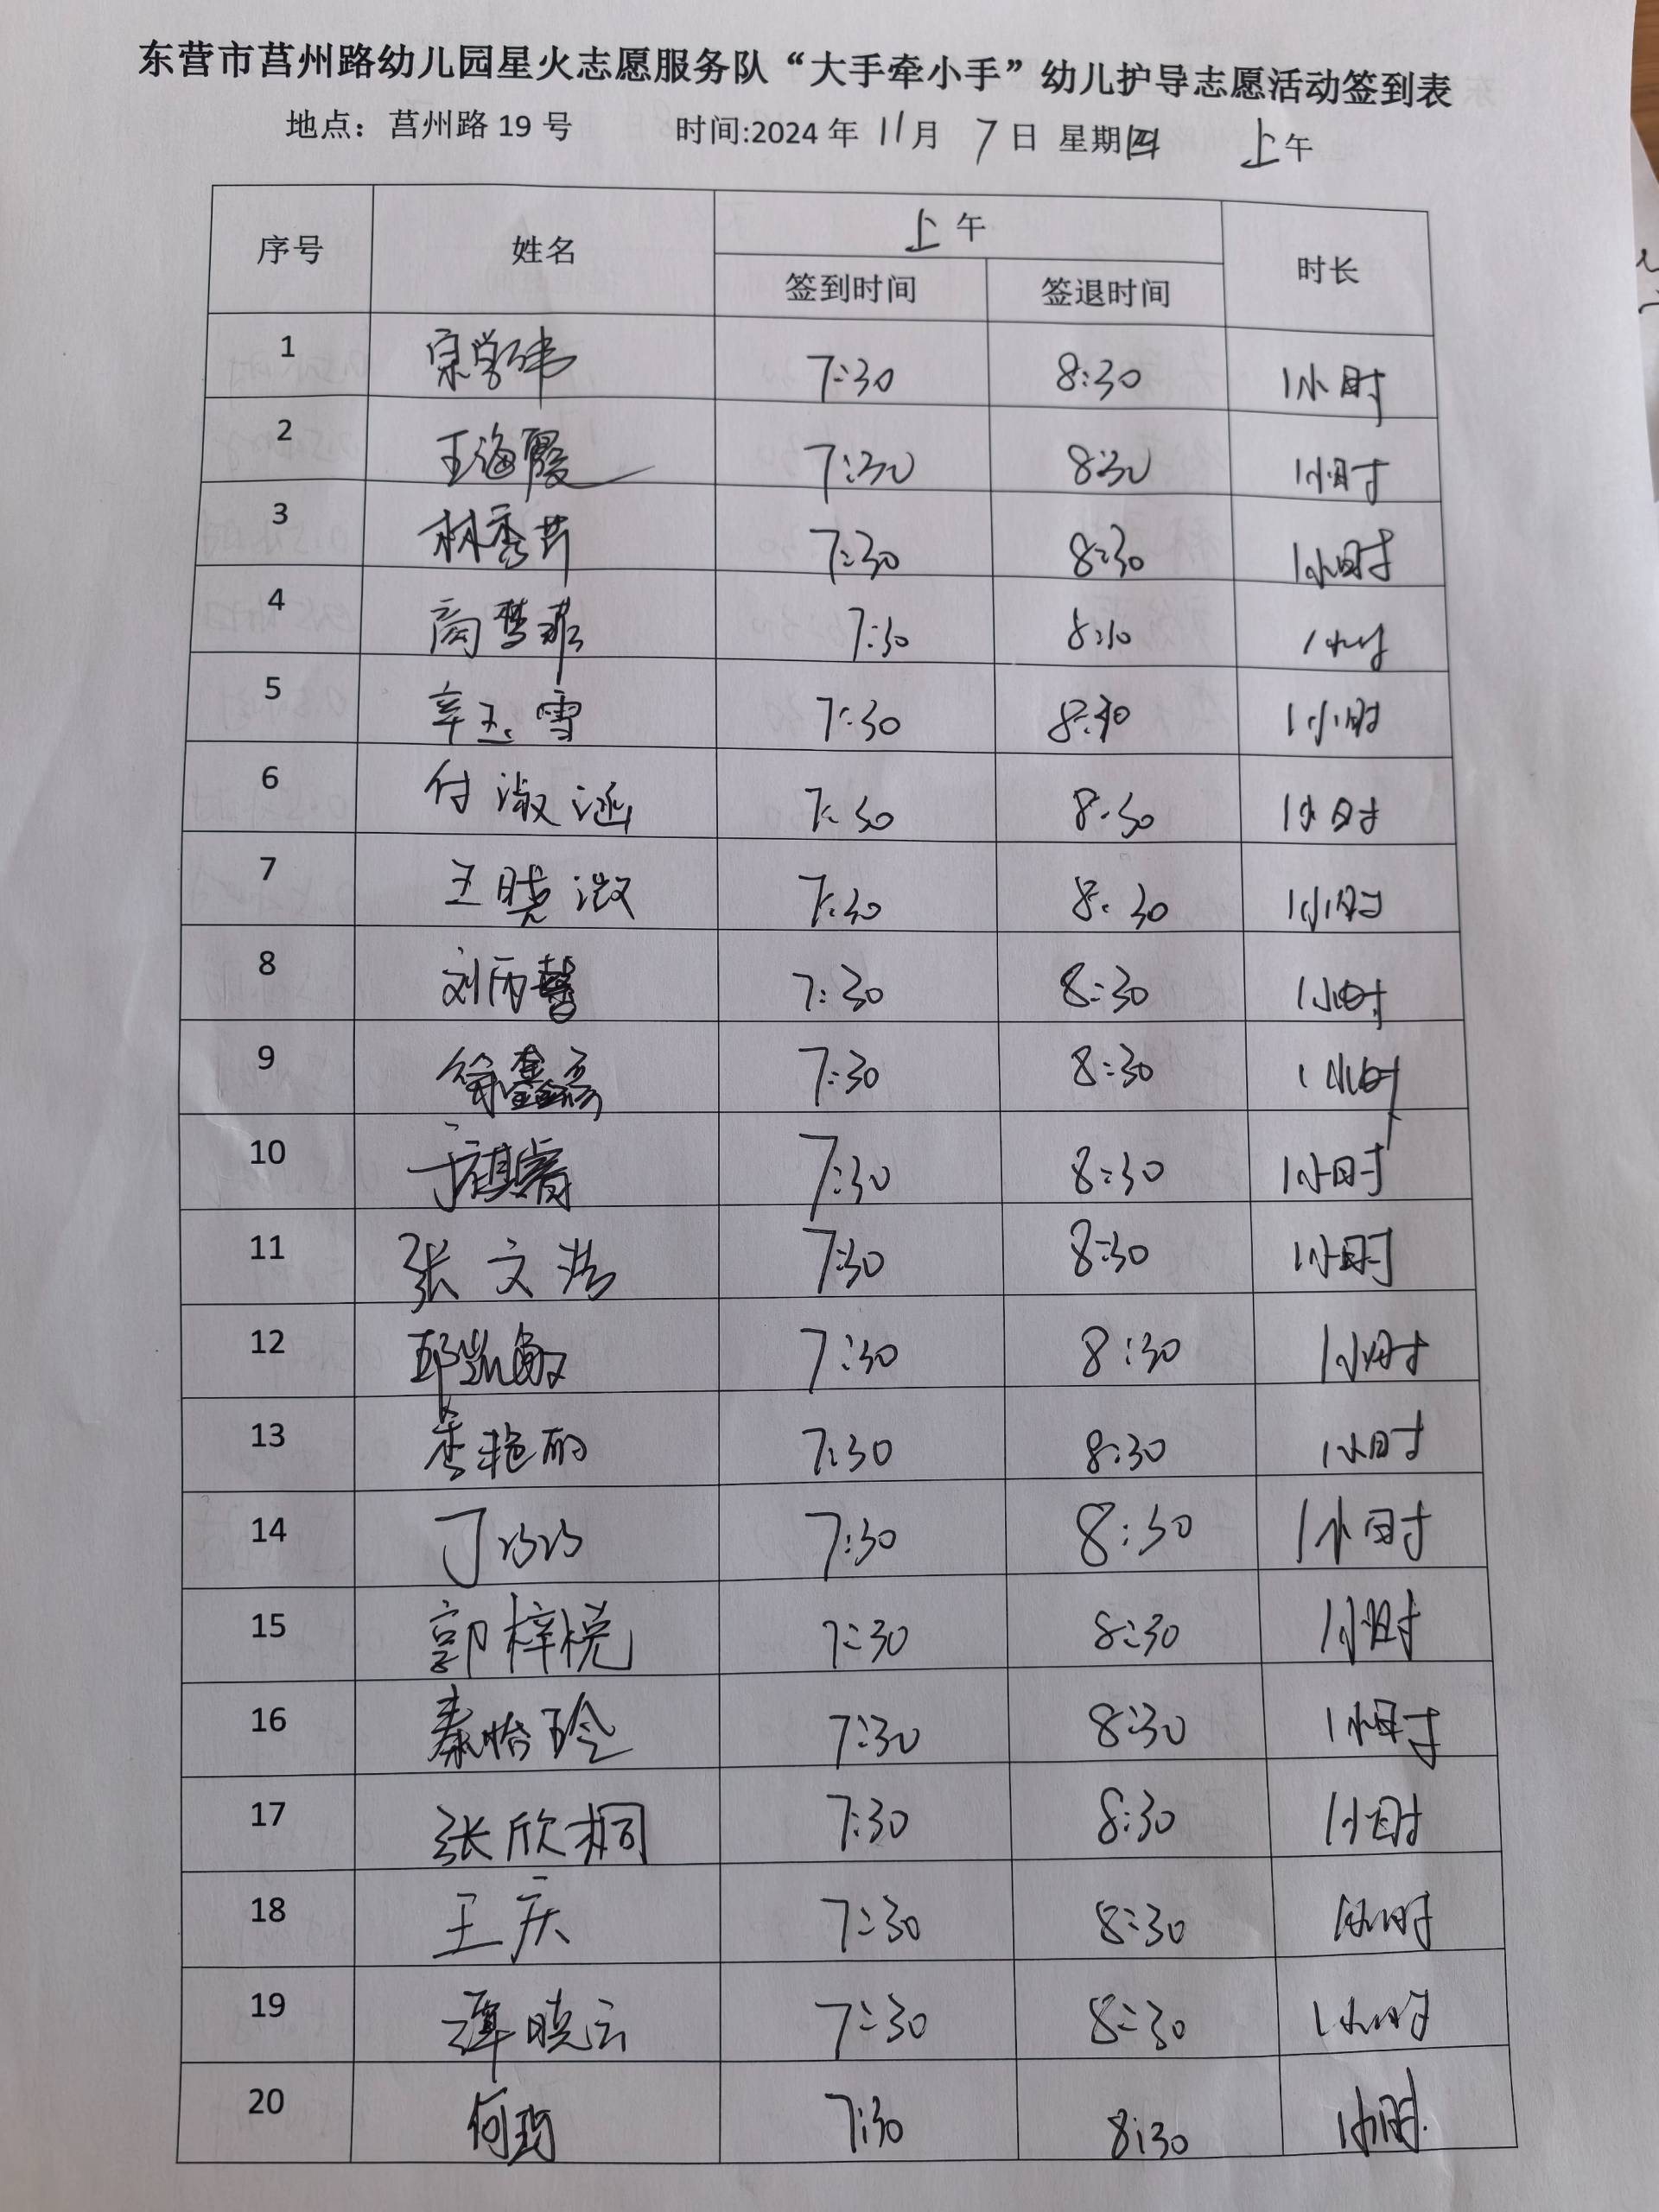 东营市莒州路幼儿园星火志愿服务队“大手牵小手”幼儿护导志愿活动签到表
地点：莒州路 19 号 时间:2024 年 11月 7日 星期四 上午
序号 姓名 上午 时长
签到时间 签退时间
1 宗学伟 7:30 8:30 1小时
2 王海霞 7:30 8:30 1小时
3 林秀芹 7:30 8:30 1小时
4 商梦菲 7:30 8:30 1小时
5 辛玉雪 7:30 8:30 1小时
6 付淑涵 7:30 8:30 1小时
7 王晓淑 7:30 8:30 1小时
8 刘丙馨 7:30 8:30 1小时
9 徐鑫彦 7:30 8:30 1小时
10 于祺睿 7:30 8:30 1小时
11 张文浩 7:30 8:30 1小时
12 邱凯敏 7:30 8:30 1小时
13 李艳丽 7:30 8:30 1小时
14 丁巧巧 7:30 8:30 1小时
15 郭梓悦 7:30 8:30 1小时
16 秦怡玲 7:30 8:30 1小时
17 张欣桐 7:30 8:30 1小时
18 王庆 7:30 8:30 1小时
19 谭晓云 7:30 8:30 1小时
20 何 7:30 8:30 1小时